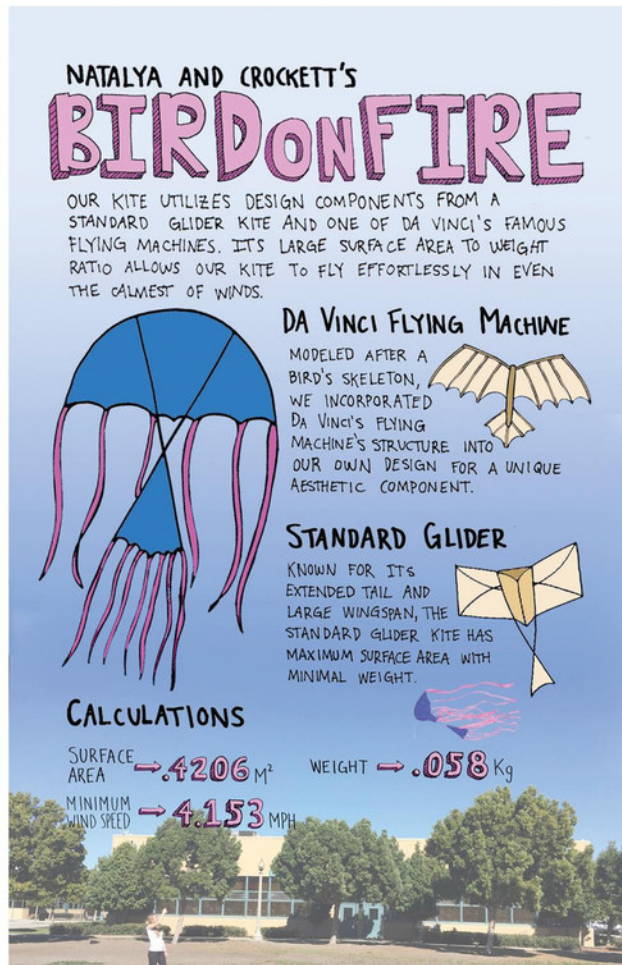 NATALYA AND CROCKETT'S
BIRD ON FIRE
OUR KITE UTILIZES DESIGN COMPONENTS FROM A
STANDARD GLIDER KITE AND ONE OF DA VINCI'S FAMOUS
FLYING MACHINES. ITS LARGE SURFACE AREA TO WEIGHT
RATIO ALLOWS OUR KITE TO FLY EFFORTLESSLY IN EVEN
THE CALMEST OF WINDS.
DA VINCI FLYING MACHINE
MODELED AFTER A
BIRD'S SKELETON,
WE INCORPORATED
DA VINCI'S FLYING
MACHINE'S STRUCTURE INTO
OUR OWN DESIGN FOR A UNIQUE
AESTHETIC COMPONENT.
STANDARD GLIDER
KNOWN FOR ITS
EXTENDED TAIL AND
LARGE WINGSPAN, THE
STANDARD GLIDER KITE HAS
MAXIMUM SURFACE AREA WITH
MINIMAL WEIGHT.
CALCULATIONS
SURFACE AREA → .4206 M²
WEIGHT → .058 Kg
MINIMUM WIND SPEED → 4.153 MPH